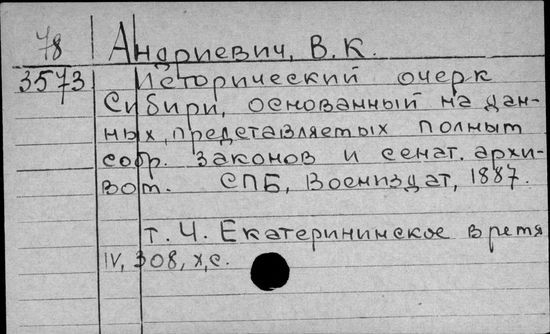 78
Андриевич, В.К.
3573
Исторический очерк
Сибири, основанный на дан-
ных, представляемых полным
собр. законов и сенат. архи-
вом. СПБ, Воениздат, 1887.
т. 4. Екатерининское время
IV, 308, X, с.